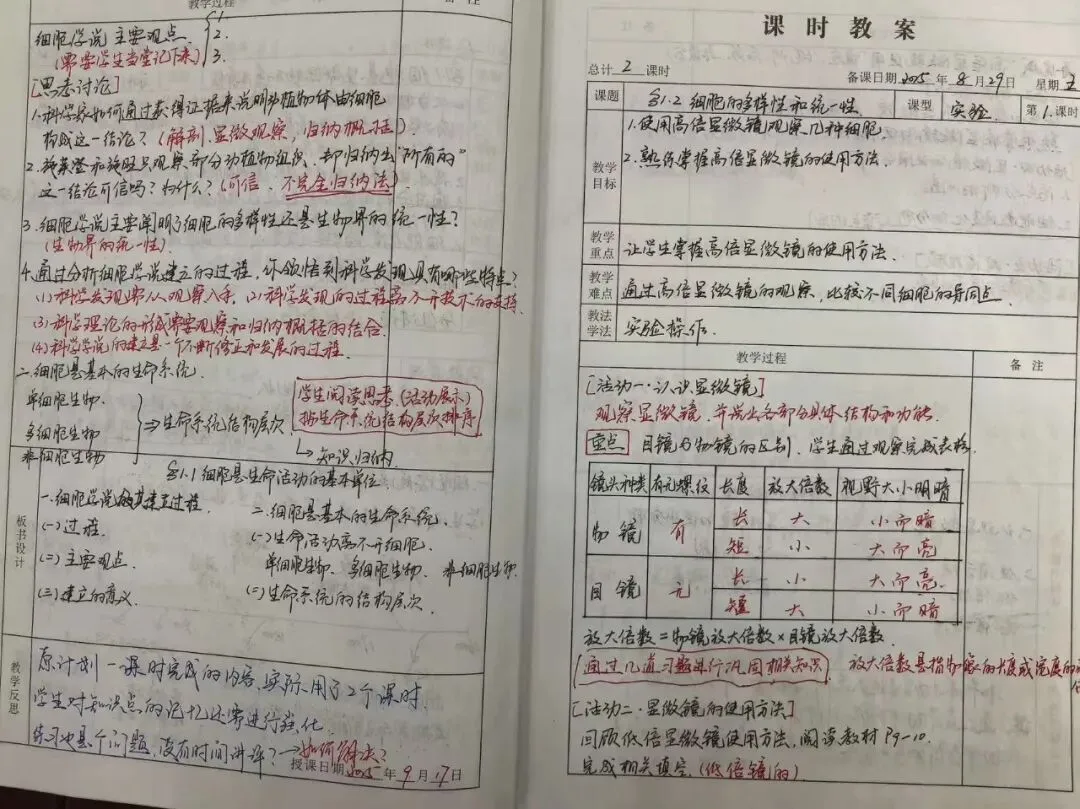 教学过程 备注
细胞学说主要观点 { 1.
2.
(需要学生当堂记下来) 3.
[思考讨论]
1.科学家如何通过获得证据来说明动植物体由细胞
构成这一结论?(解剖、显微观察、归纳概括)
2.施莱登和施旺只观察部分动植物组织,却归纳出"所有的"
这一结论可信吗?为什么?(可信、不完全归纳法).
3.细胞学说主要阐明了细胞的多样性还是生物界的统一性?
(生物界的统一性).
4.通过分析细胞学说建立的过程,你领悟到科学发现具有哪些特点?
(1)科学发现常从观察入手. (2)科学发现的过程离不开技术的支持.
(3)科学理论的形成需要观察和归纳概括的结合.
(4)科学学说的建立是一个不断修正和发展的过程.
二.细胞是基本的生命系统.
单细胞生物.
多细胞生物 } ⇒生命系统结构层次
非细胞生物
学生阅读思考,(活动展示)
生命系统结构层次排序
↳知识归纳.
板书设计
§1.1 细胞是生命活动的基本单位
一.细胞学说及其建立过程. 二.细胞是基本的生命系统.
(一)过程. (一)生命活动离不开细胞.
(二)主要观点. 单细胞生物、多细胞生物、非细胞生物.
(三)建立的意义. (二)生命系统的结构层次.
教学反思
原计划一课时完成的内容,实际用了2个课时.
学生对知识点的记忆还需进行强化.
练习也是个问题,没有时间讲评?→如何解决?
授课日期 2025年 9月 17日
课时教案
总计 2 课时 备课日期 2025年 8月 29日 星期 五
课题 §1.2 细胞的多样性和统一性. 课型 实验. 第1.课时
教学目标 1.使用高倍显微镜观察几种细胞.
2.熟练掌握高倍显微镜的使用方法.
教学重点 让学生掌握高倍显微镜的使用方法.
教学难点 通过高倍显微镜的观察,比较不同细胞的异同点.
教法学法 实验操作.
教学过程 备注
[活动一.认识显微镜]
观察显微镜,并说出各部分具体结构和功能.
重点 目镜与物镜的区别,学生通过观察完成表格.
镜头种类 有无螺纹 长度 放大倍数 视野大小明暗
物镜 有 长 大 小而暗
短 小 大而亮
目镜 无 长 小 大而亮.
短 大 小而暗
放大倍数=物镜放大倍数×目镜放大倍数.
通过几道习题进行巩固相关知识 放大倍数是指物象的长度或宽度的
[活动二.显微镜的使用方法]
回顾低倍显微镜使用方法,阅读教材P9-10.
完成相关填空.(低倍镜的)